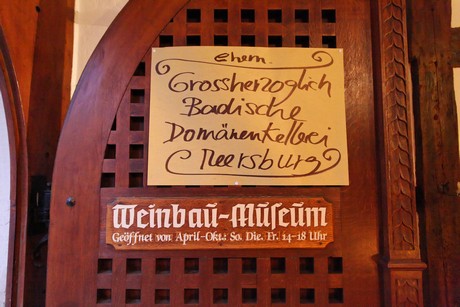 ehem.
Grossherzoglich
Badische
Domänenkellerei
Meersburg
Weinbau-Museum
Geöffnet von April-Okt.: So. Die. Fr. 14-18 Uhr